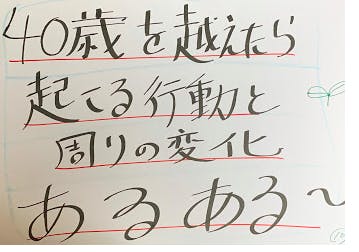 40歳を越えたら
起こる行動と
周りの変化
あるある〜